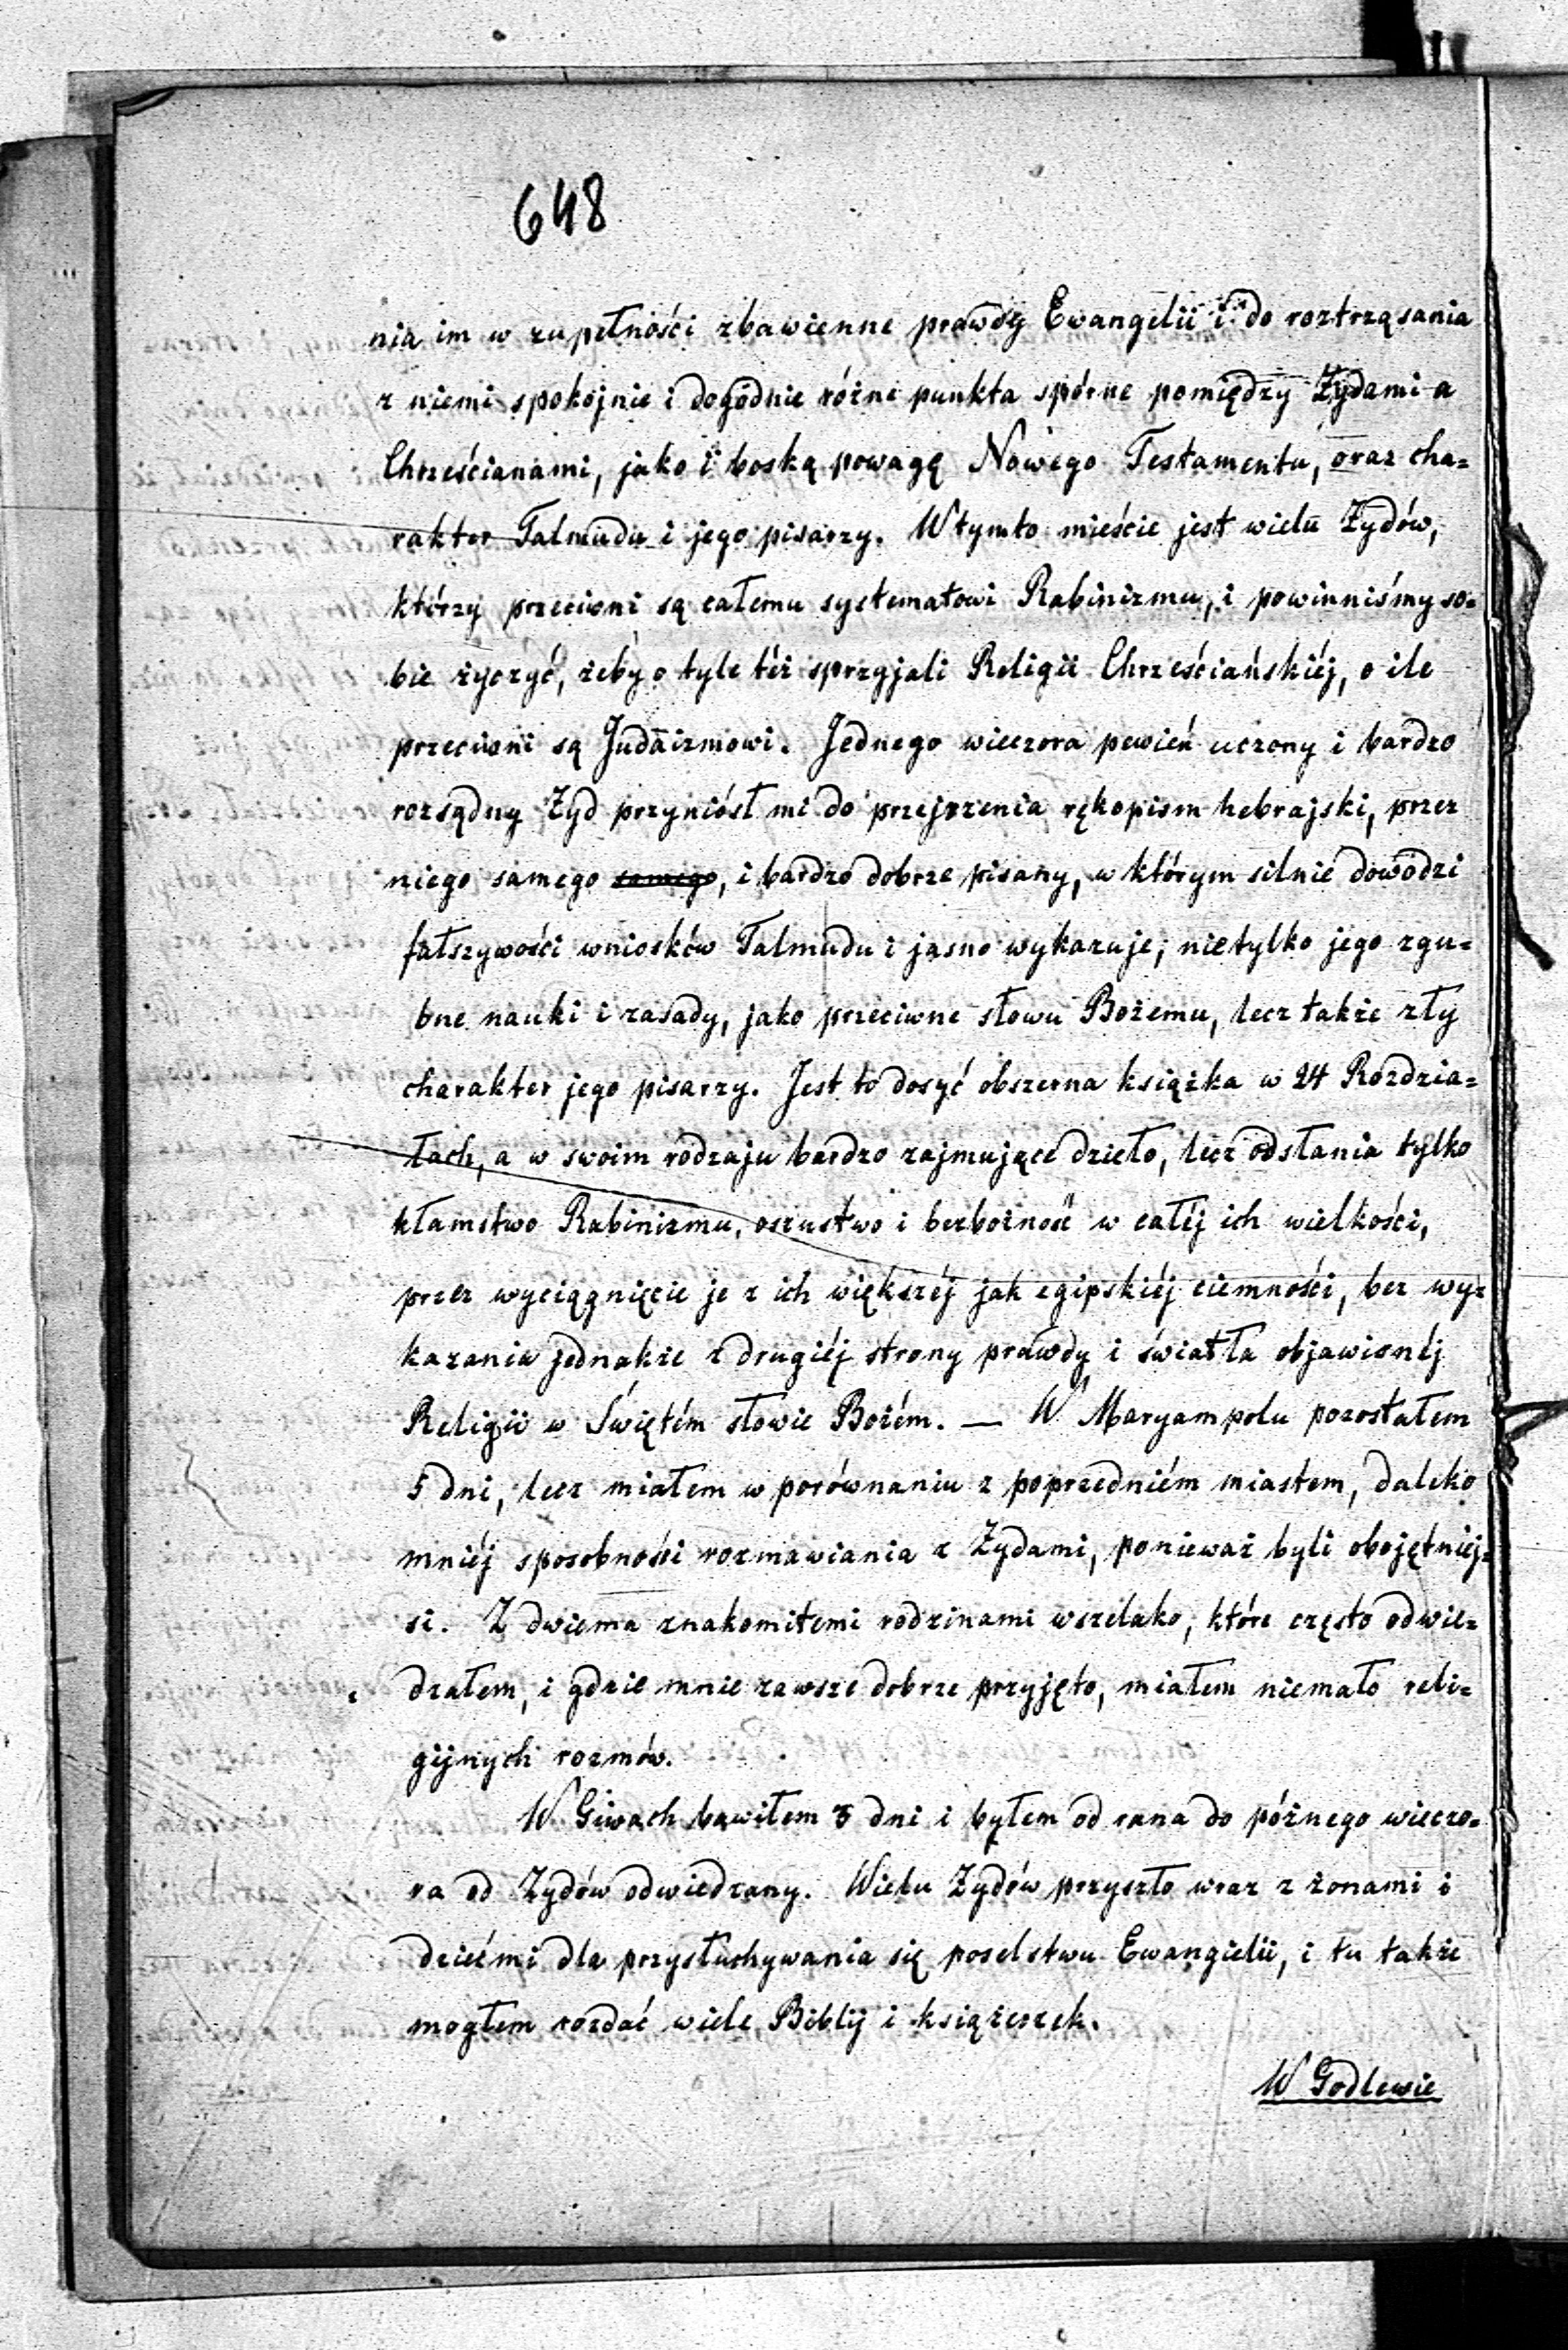 648
nia im w zupełności zbawienne prawdy Ewangelii i do roztrząsania
z niemi spokojnie i dogodnie różne punkta spórne pomiędzy Żydami a
Chrześcianami, jako i boską powagę Nowego Testamentu, oraz cha=
rakter Talmudu i jego pisarzy. W tymto mieście jest wielu Żydów,
którzy przeciwni są całemu systematowi Rabinizmu, i powinniśmy so=
bie życzyć, żeby o tyle téż sprzyjali Religii Chrześciańskiéj, o ile
przeciwni są Judaizmowi. Jednego wieczora pewień uczony i bardzo
rozsądny Żyd przyniósł mi do przejrzenia rękopism hebrajski, przez
niego samego samego, i bardzo dobrze pisany, w którym silnie dowodzi
fałszywości wniosków Talmudu i jasno wykazuje, nietylko jego zgu=
bne nauki i zasady, jako przeciwne słowu Bożemu, lecz także zły
charakter jego pisarzy. Jest to dosyć obszerna książka w 24 Rozdzia=
łach, a w swoim rodzaju bardzo zajmujące dzieło, lecz odsłania tylko
kłamstwo Rabinizmu, oszustwo i bezbożność w całéj ich wielkości,
przez wyciągnięcie je z ich większéj jak egipskiéj ciemności, bez wy=
kazania jednakże z drugiéj strony prawdy i światła objawionéj
Religii w Świętém słowie Bożém. — W Maryampolu pozostałem
5 dni, lecz miałem w porównaniu z poprzedniém miastem, daleko
mniéj sposobności rozmawiania z Żydami, ponieważ byli obojętniej=
si. Z dwiema znakomitemi rodzinami wszelako, które często odwie=
dzałem, i gdzie mnie zawsze dobrze przyjęto, miałem niemało reli=
gijnych rozmów.
W Giwach bawiłem 3 dni i byłem od rana do późnego wieczo=
ra od Żydów odwiedzany. Wielu Żydów przyszło wraz z żonami i
dziećmi dla przysłuchywania się poselstwu Ewangielii, i tu także
mogłem rozdać wiele Biblij i książeszek.
W Godlewie